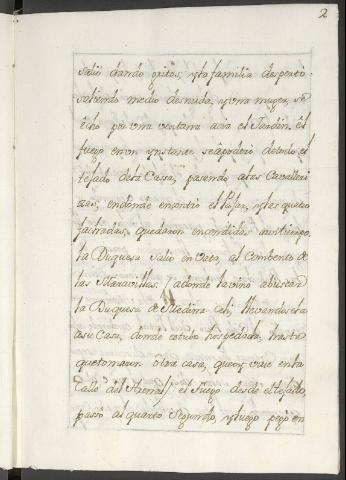 2
salio dando gritos, y la familia desperto
saliendo medio desnuda, y una muger, se
echo por una ventana acia el Jardin. el
fuego en un ynstante se apodero de todo el
tejado de la Casa, pasando a las Cavalleri
zas, en donde encontro el Pajar, y las quatro
fachadas, quedaron encendidas a un tiempo,
la Duquesa salio en vata, al Combento de
las Maravillas. adonde la vino a buscar
la Duquesa de Medina Celi, llevandosela
a su Casa, donde estubo hospedada, hasta
que tomaron otra casa, que oy vive en la
Calle del Arenal, el Fuego desde el tejado,
passò al quarto Segundo, y luego pegò en